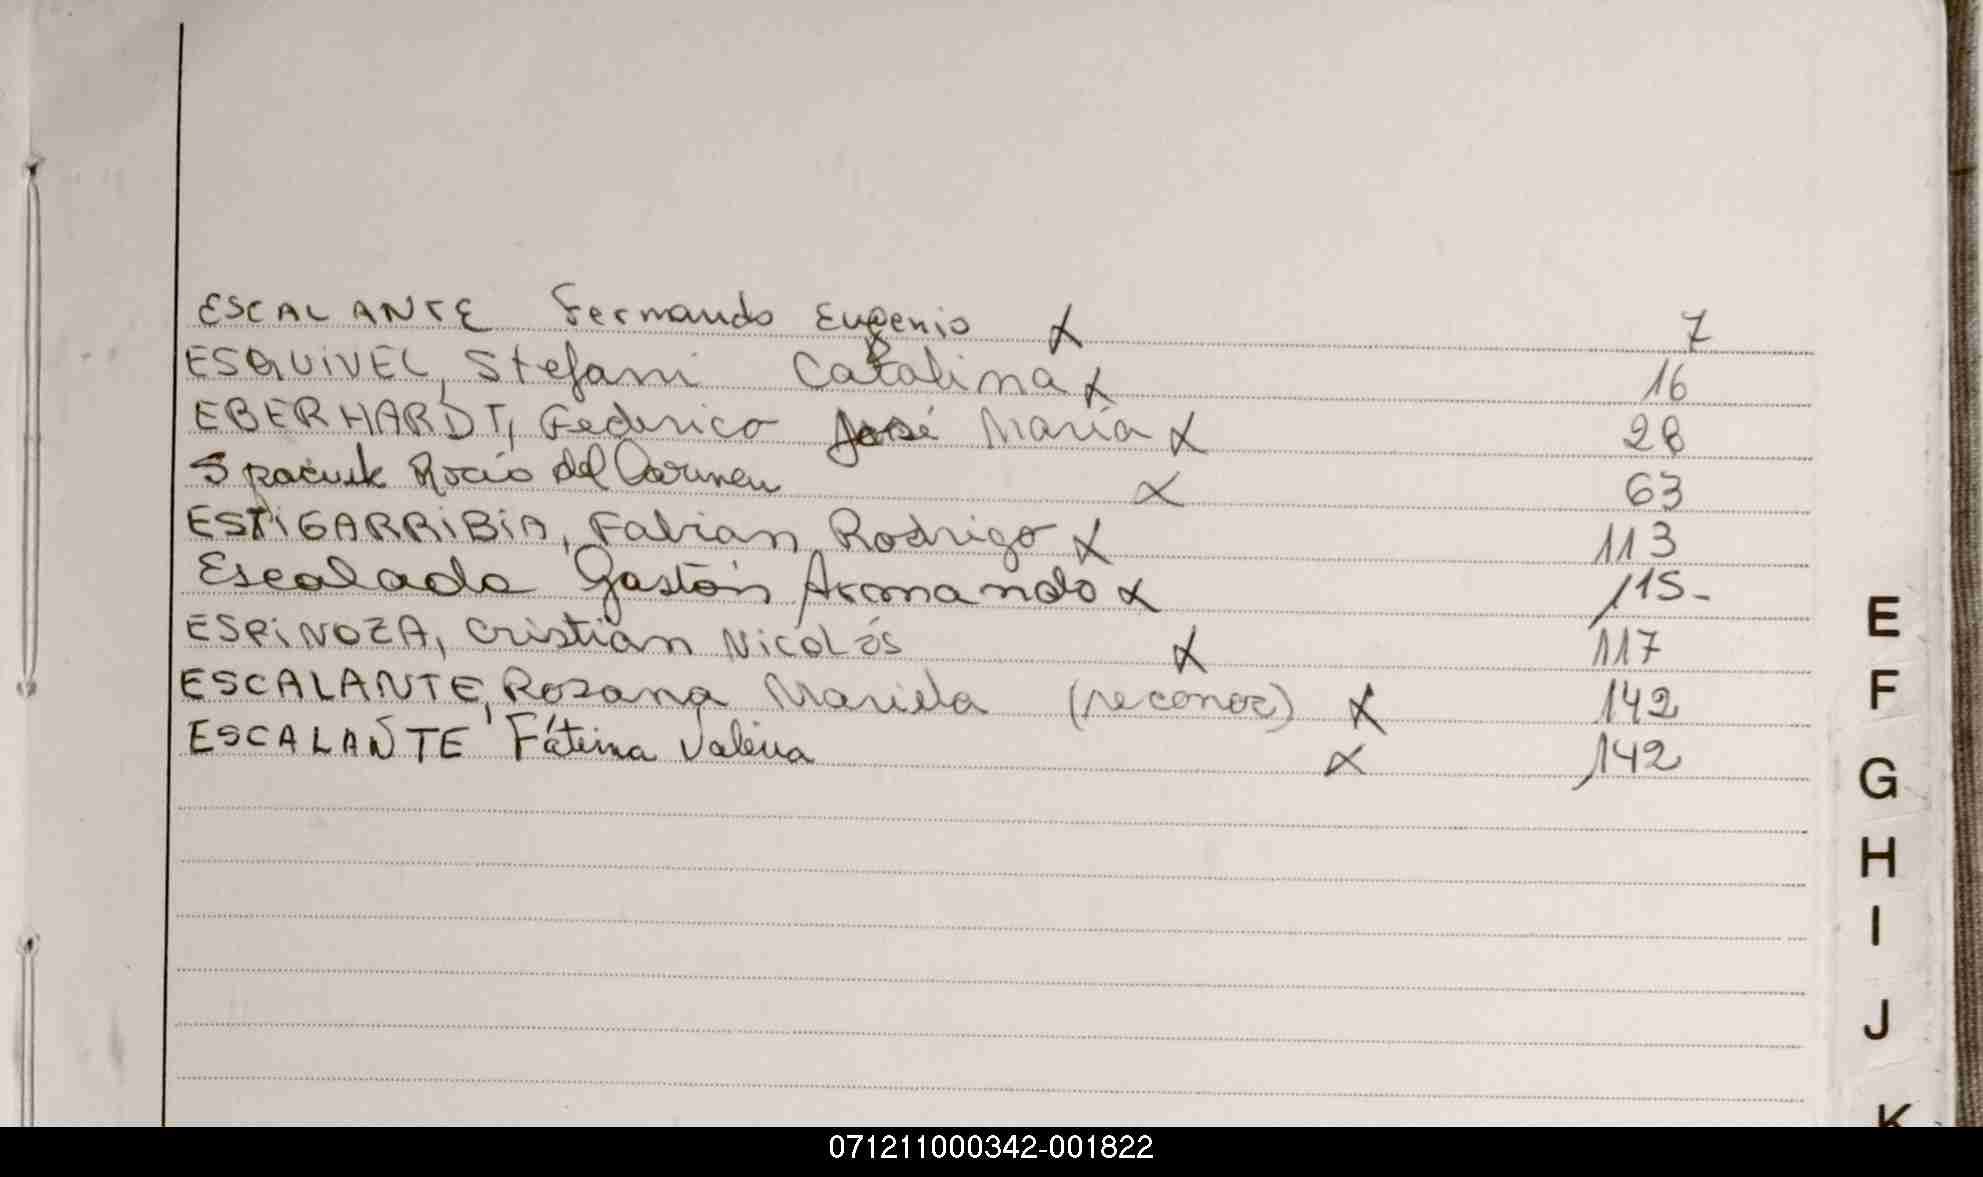 ESCALANTE Fernando Eugenio X 7
ESQUIVEL, Stefani Catalina X 16
EBERHARDT, Federico José María X 28
Spaciuk Rocío del Carmen X 63
ESTIGARRIBIA, Fabian Rodrigo X 113
Escalada Gastón Armando X 115-
ESPINOZA, Cristian Nicolás X 117
ESCALANTE, Rosana Mariela (reconoc) X 142
ESCALANTE Fátima Valeria X 142
E
F
G
H
I
J
K
071211000342-001822